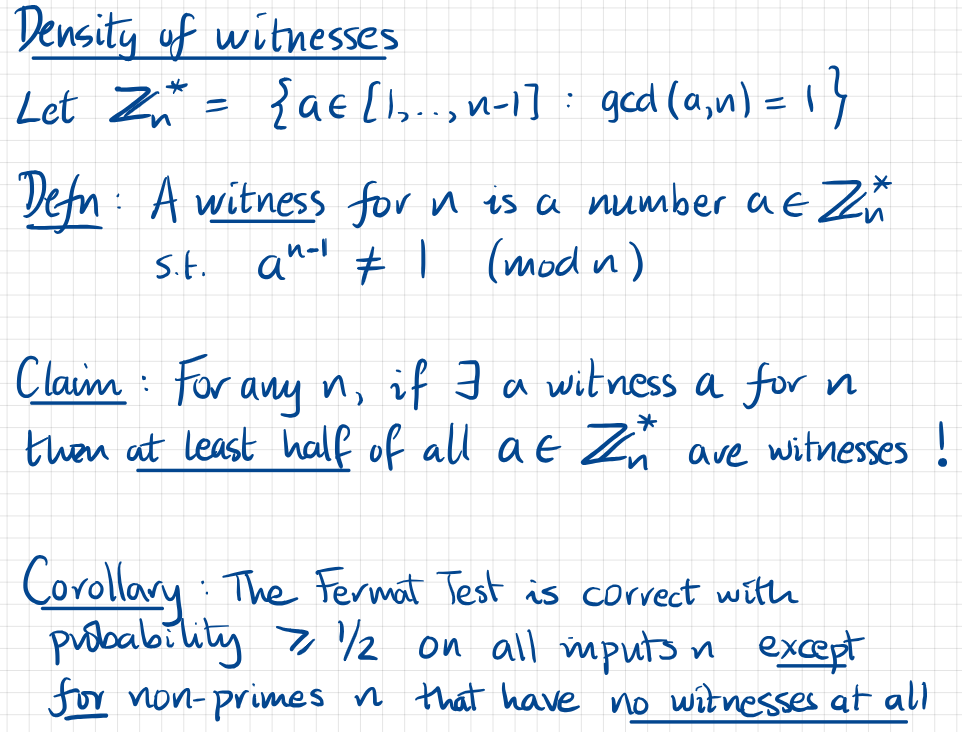 Density of witnesses
Let ℤₙ* = {a ∈ [1,..,n-1] : gcd(a,n) = 1}
Defn : A witness for n is a number a ∈ ℤₙ*
s.t. aⁿ⁻¹ ≠ 1 (mod n)
Claim : For any n, if ∃ a witness a for n
then at least half of all a ∈ ℤₙ* are witnesses !
Corollary : The Fermat Test is correct with
probability ⩾ 1/2 on all inputs n except
for non-primes n that have no witnesses at all